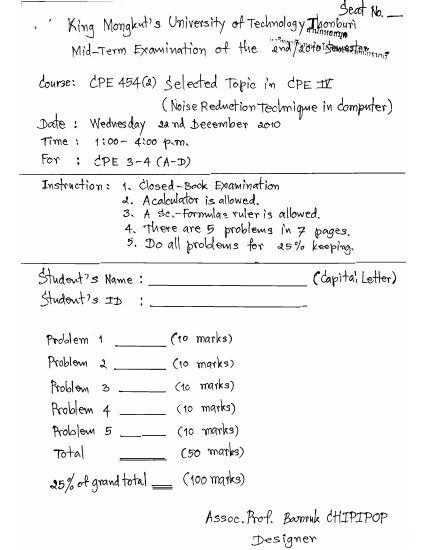 Seat No. __
King Mongkut's University of Technology Thonburi
Mid-Term Examination of the 2nd/2010 Semester
Course: CPE 454(2) Selected Topic in CPE IV
(Noise Reduction Technique in Computer)
Date : Wednesday 22nd December 2010
Time : 1:00- 4:00 p.m.
For : CPE 3-4 (A-D)
Instruction: 1. Closed-Book Examination
2. Acalculator is allowed.
3. A Sc.-Formulas ruler is allowed.
4. There are 5 problems in 7 pages.
5. Do all problems for 25% keeping.
Student's Name : ____________ (Capital Letter)
Student's ID : ____________
Problem 1 ____ (10 marks)
Problem 2 ____ (10 marks)
Problem 3 ____ (10 marks)
Problem 4 ____ (10 marks)
Problem 5 ____ (10 marks)
Total ____ (50 marks)
25% of grand total ___ (100 marks)
Assoc. Prof. CHIPIPOP
Designer